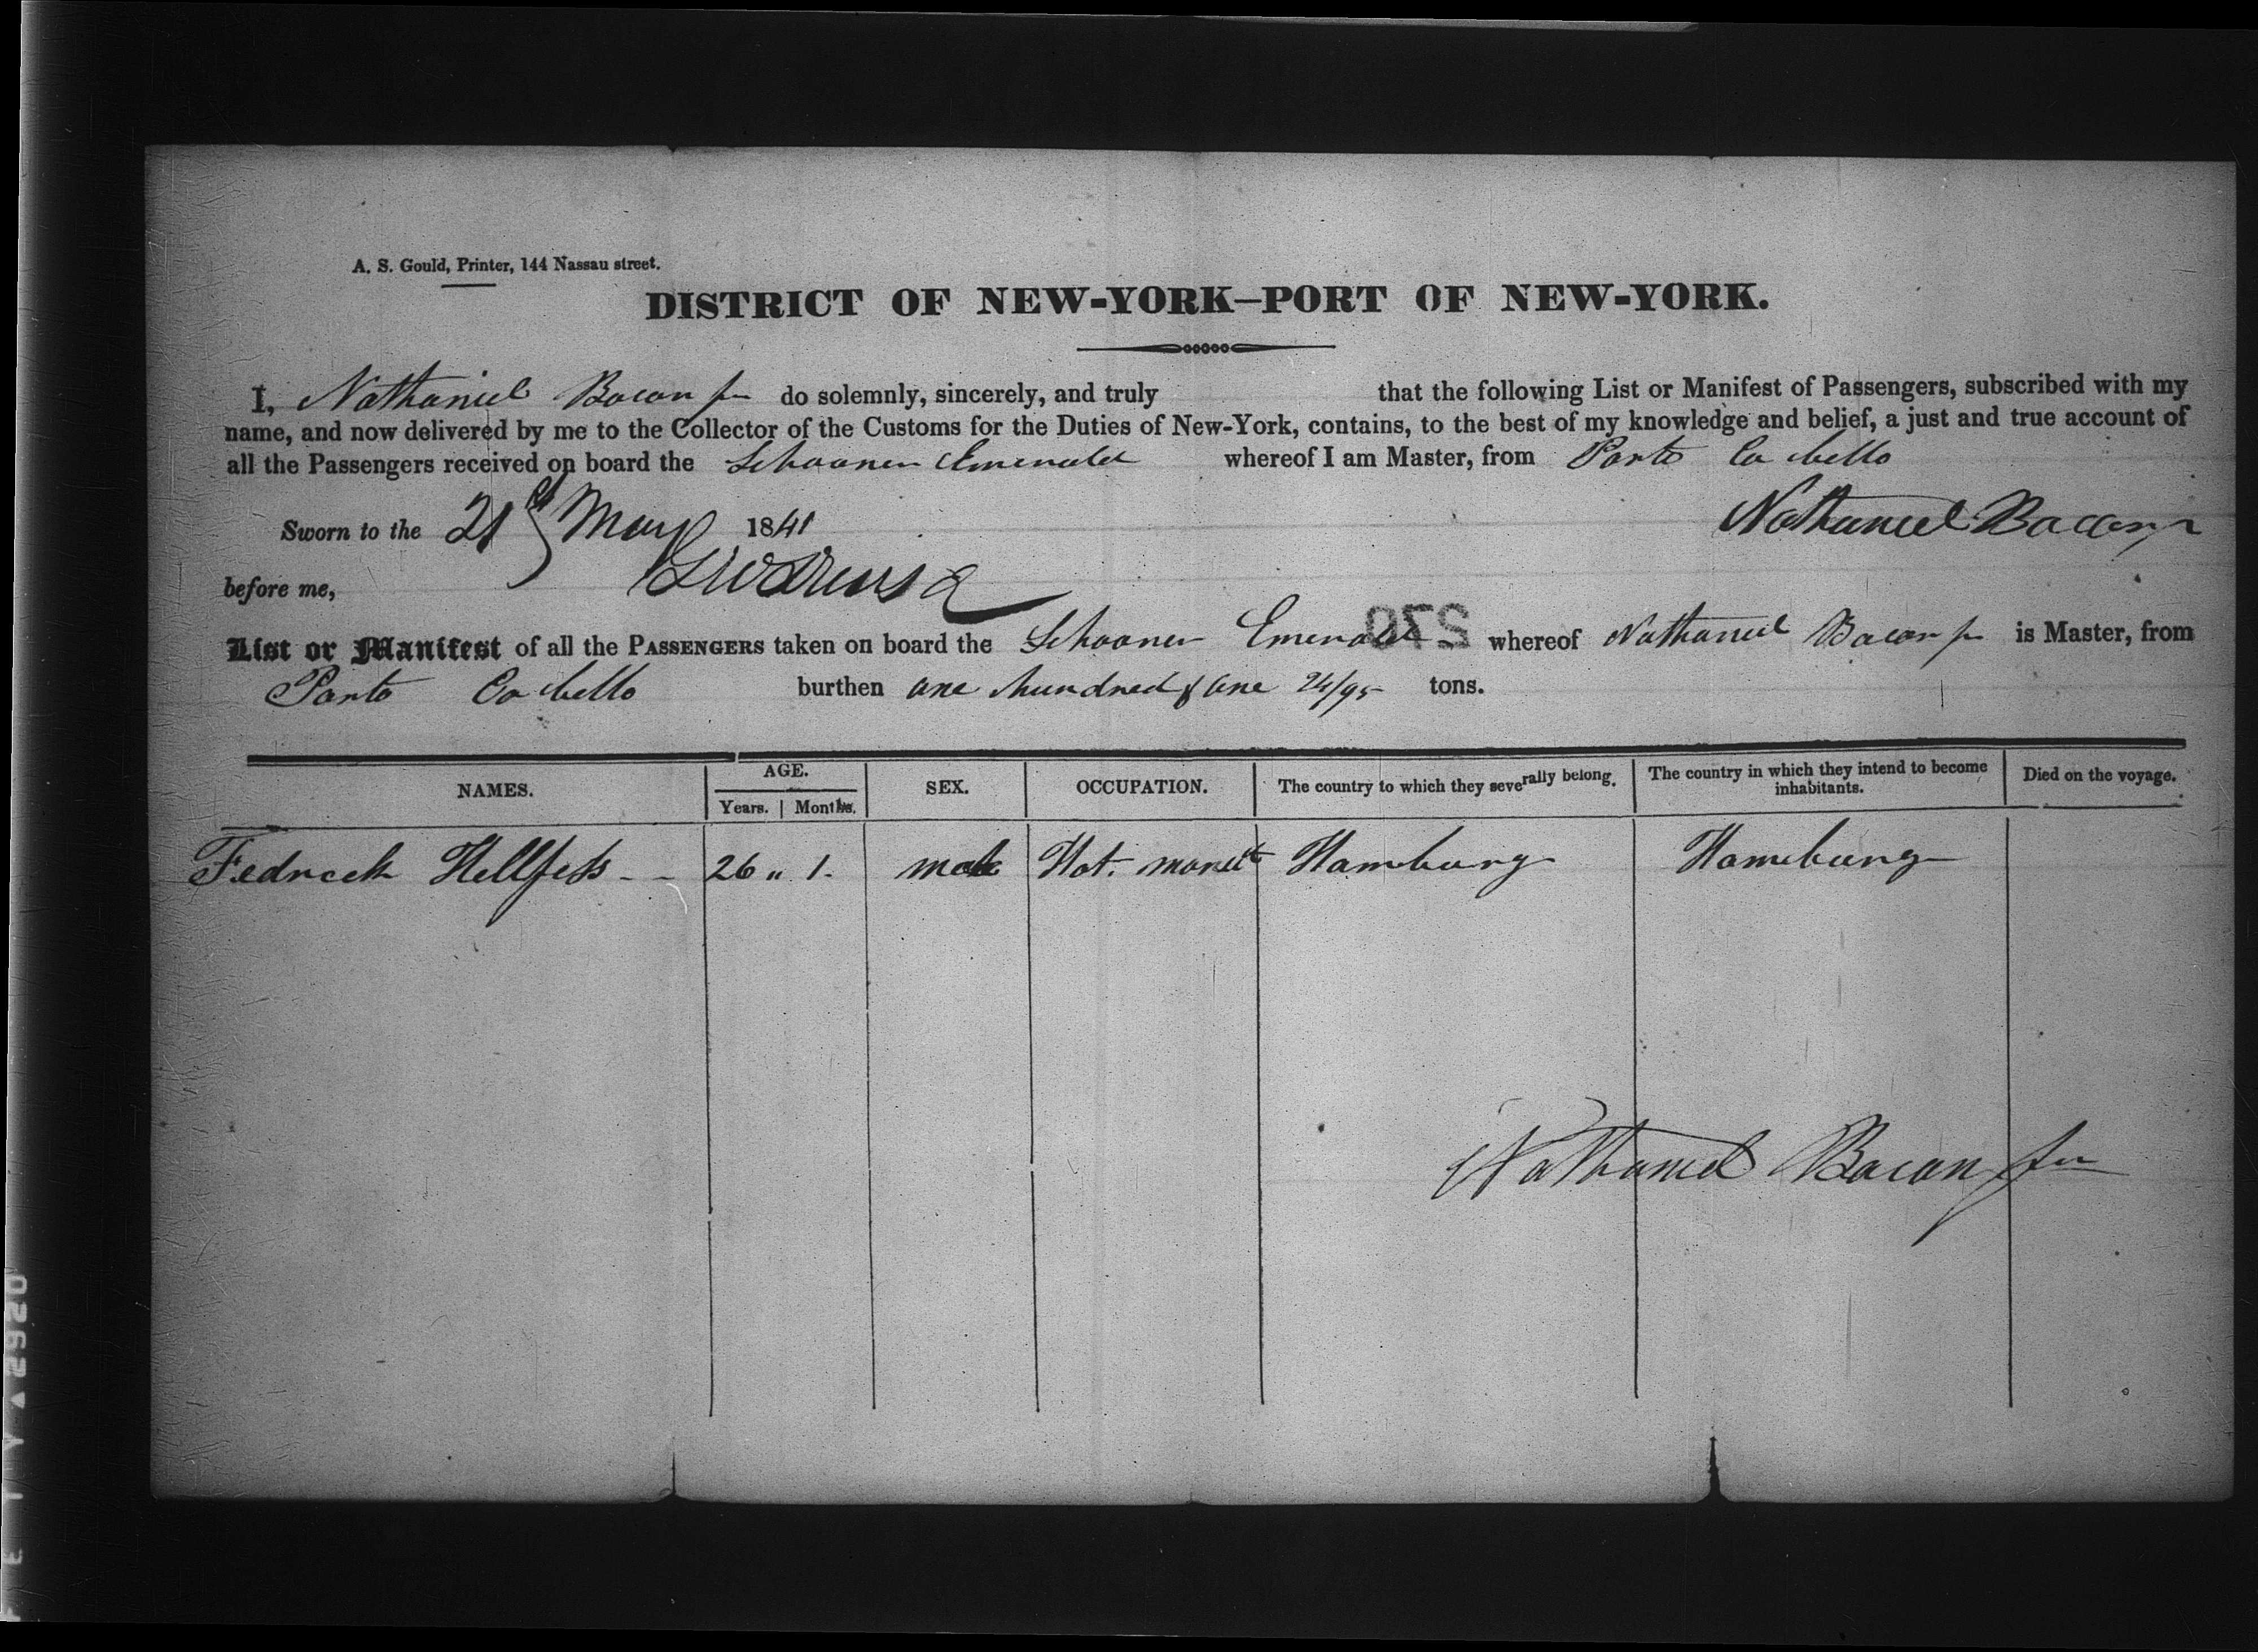 A. S. Gould, Printer, 144 Nassau street.
DISTRICT OF NEW-YORK—PORT OF NEW-YORK.
I, Nathaniel Bacon Jr do solemnly, sincerely, and truly that the following List or Manifest of Passengers, subscribed with my
name, and now delivered by me to the Collector of the Customs for the Duties of New-York, contains, to the best of my knowledge and belief, a just and true account of
all the Passengers received on board the Schooner Emerald whereof I am Master, from Porto Cabello
Sworn to the 21st May 1841 Nathaniel Bacon Jr
before me,
List or Manifest of all the PASSENGERS taken on board the Schooner Emerald whereof Nathaniel Bacon Jr is Master, from
Porto Cabello burthen one hundred & one 24/95 tons.
NAMES. AGE. Years. Months. SEX. OCCUPATION. The country to which they severally belong. The country in which they intend to become inhabitants. Died on the voyage.
Fedreck 26 " 1. male Hat. Hamburg Hamburg
Nathaniel Bacon Jr
270